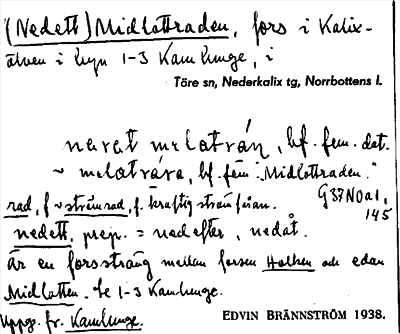 (Nedett) Midlottraden, fors i Kalix-
älven i byn 1-3 Kamlunge, i
Töre sn, Nederkalix tg, Norrbottens l.
bf. fem. dat.
~ bf. fem. "Midlottraden."
rad, f ~ strömrad, f. kraftig ström fåran.
G 37 N 0 a 1, 145
nedett, prep. = nedefter, nedåt.
Är en forssträng mellan forsen och edan
Midlotten. Se 1-3 Kamlunge.
Uppg. fr. Kamlunge.
EDVIN BRÄNNSTRÖM 1938.